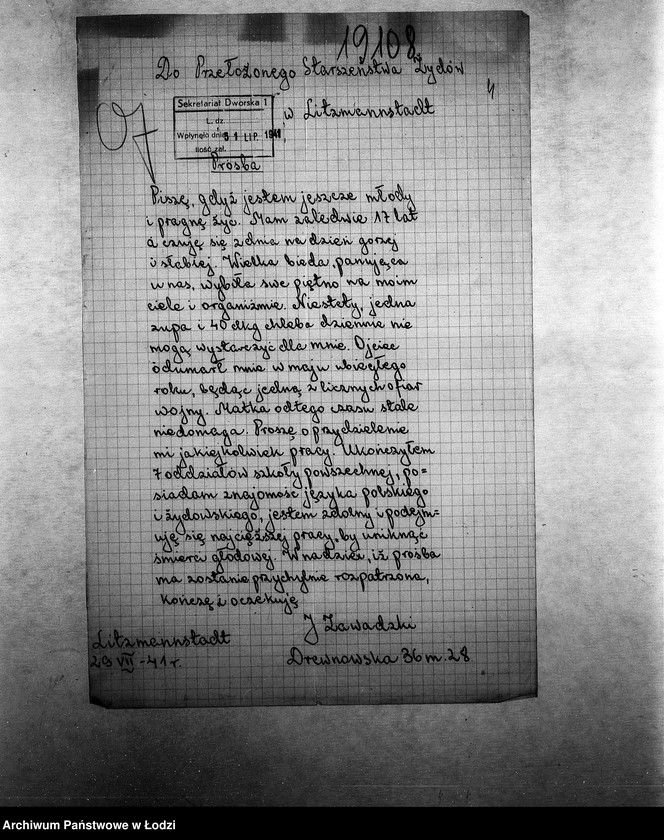 19108
Do Przełożonego Starszeństwa Żydów
4
w Litzmannstadt
Sekretariat Dworska 1
L. dz.
Wpłynęło dnia 31 LIP. 1941
Ilość zał.
Prośba
Piszę, gdyż jestem jeszcze młody
i pragnę żyć. Mam zaledwie 17 lat
a czuję się z dnia na dzień gorzej
i słabiej. Wielka bieda, panująca
u nas, wybiła swe piętno na moim
ciele i organiźmie. Niestety, jedna
zupa i 40 dkg chleba dziennie nie
mogą wystarczyć dla mnie. Ojciec
odumarł mnie w maju ubiegłego
roku, będąc jedną z licznych ofiar
wojny. Matka od tego czasu stale
niedomaga. Proszę o przydzielenie
mi jakiejkolwiek pracy. Ukończyłem
7 oddziałów szkoły powszechnej, po=
siadam znajomość języka polskiego
i żydowskiego, jestem zdolny i podejm=
uję się najcięższej pracy, by uniknąć
śmierci głodowej. W nadziei, iż prośba
ma zostanie przychylnie rozpatrzona,
kończę i oczekuję
J Zawadzki
Litzmannstadt
29 VII -41 r.
Drewnowska 36 m. 28
Archiwum Państwowe w Łodzi